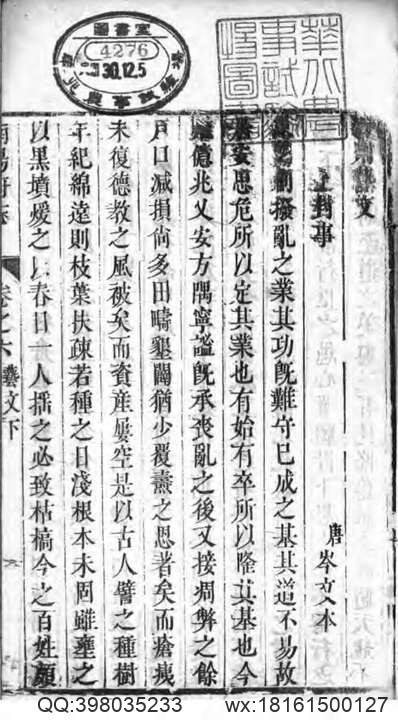 圖書室
4276
30.12.5
華北農事試驗場圖書
文
上封事
唐 岑文本
創撥亂之業其功旣難守已成之基其道不易故
安思危所以定其業也有始有卒所以隆其基也今
雖億兆乂安方隅寧謐旣承喪亂之後又接凋弊之餘
戶口減損尚多田疇墾闢猶少覆燾之恩著矣而瘡痍
未復德教之風被矣而資産屢空是以古人譬之種樹
年紀綿遠則枝葉扶疎若種之日淺根本未固雖壅之
以黑墳煖之以春日一人搖之必致枯槁今之百姓頗
南陽府志 卷之六 藝文下
QQ:398035233 wx:18161500127